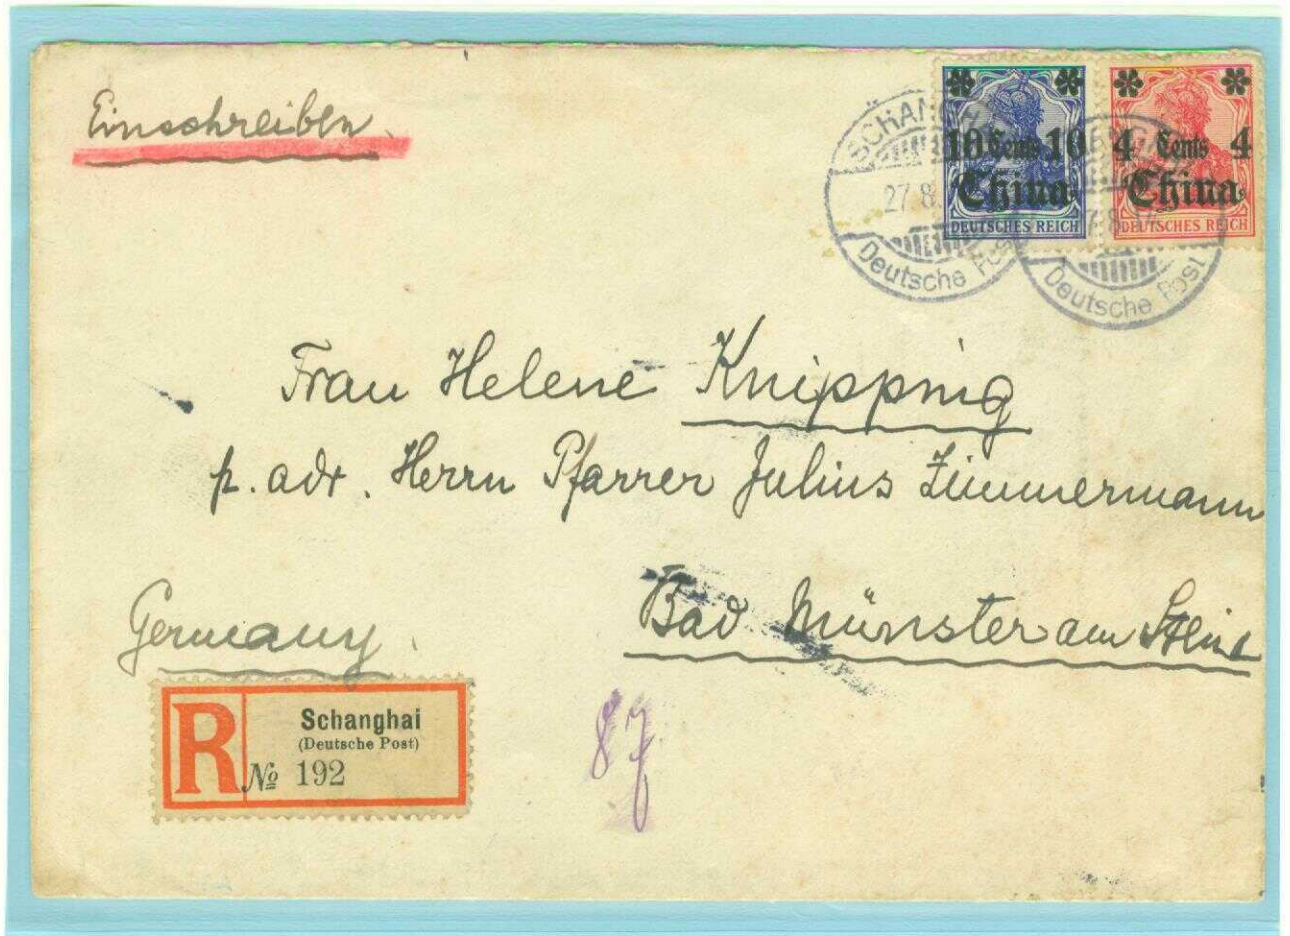 Einschreiben.
SCHANGHAI
27.8
Deutsche Post
10 Cents 10
China
DEUTSCHES REICH
4 Cents 4
China
DEUTSCHES REICH
Deutsche Post
Frau Helene Knipping
p. adr. Herrn Pfarrer Julius Zimmermann
Bad Münster am Stein
Germany.
R
Schanghai
(Deutsche Post)
№ 192
87